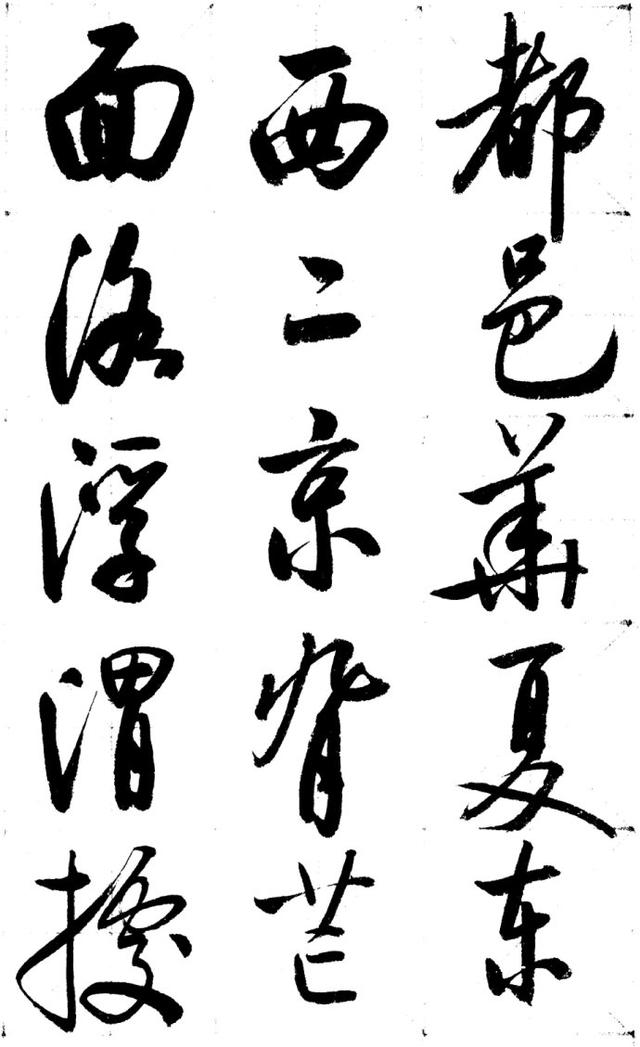 都邑華夏东
西二京背芒
面洛浮渭據